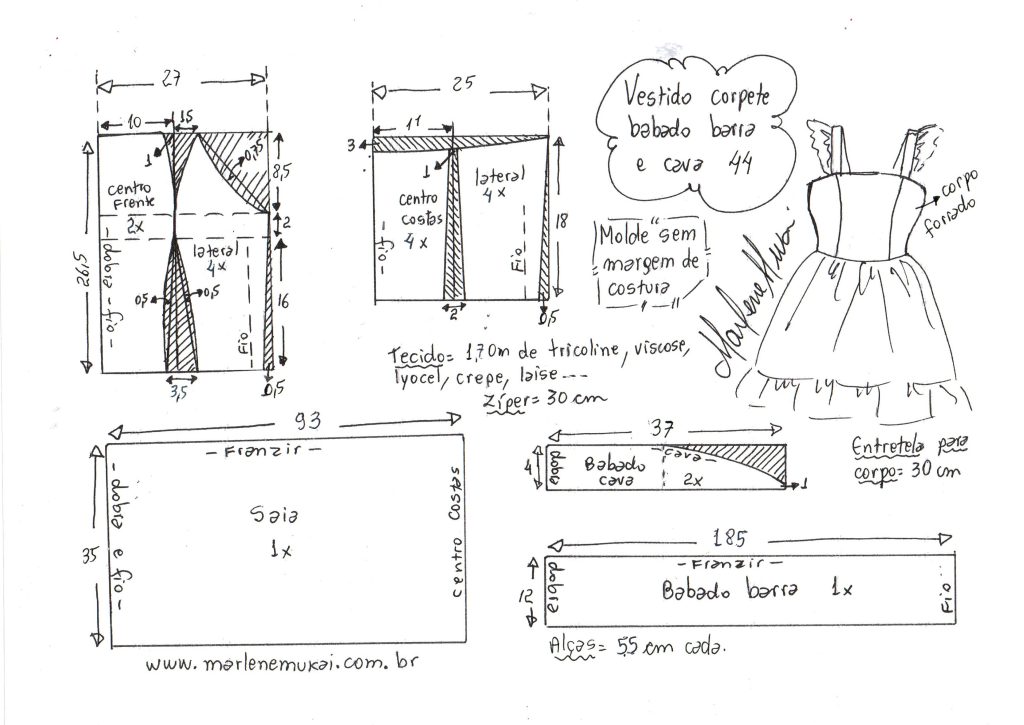 27
10
1,5
1
0,75
8,5
2
centro
Frente
2x
lateral
4x
26,5
- dobra - fio -
0,5
0,5
16
Fio
3,5
0,5
25
11
3
1
lateral
4x
centro
costas
4x
- fio -
Fio
18
2
0,5
Vestido corpete
babado barra
e cava 44
Molde sem
margem de
costura
Marlene Mukai
corpo
forrado
Tecido= 1,70m de tricoline, viscose,
lyocel, crepe, laise ---
Zíper= 30 cm
93
- Franzir -
- dobra e fio -
Saia
1x
centro costas
35
37
4
dobra
Babado
cava
cava
2x
1
Entretela para
corpo= 30 cm
185
- Franzir -
12
dobra
Babado barra 1x
Fio
Alças= 55 cm cada.
www.marlenemukai.com.br